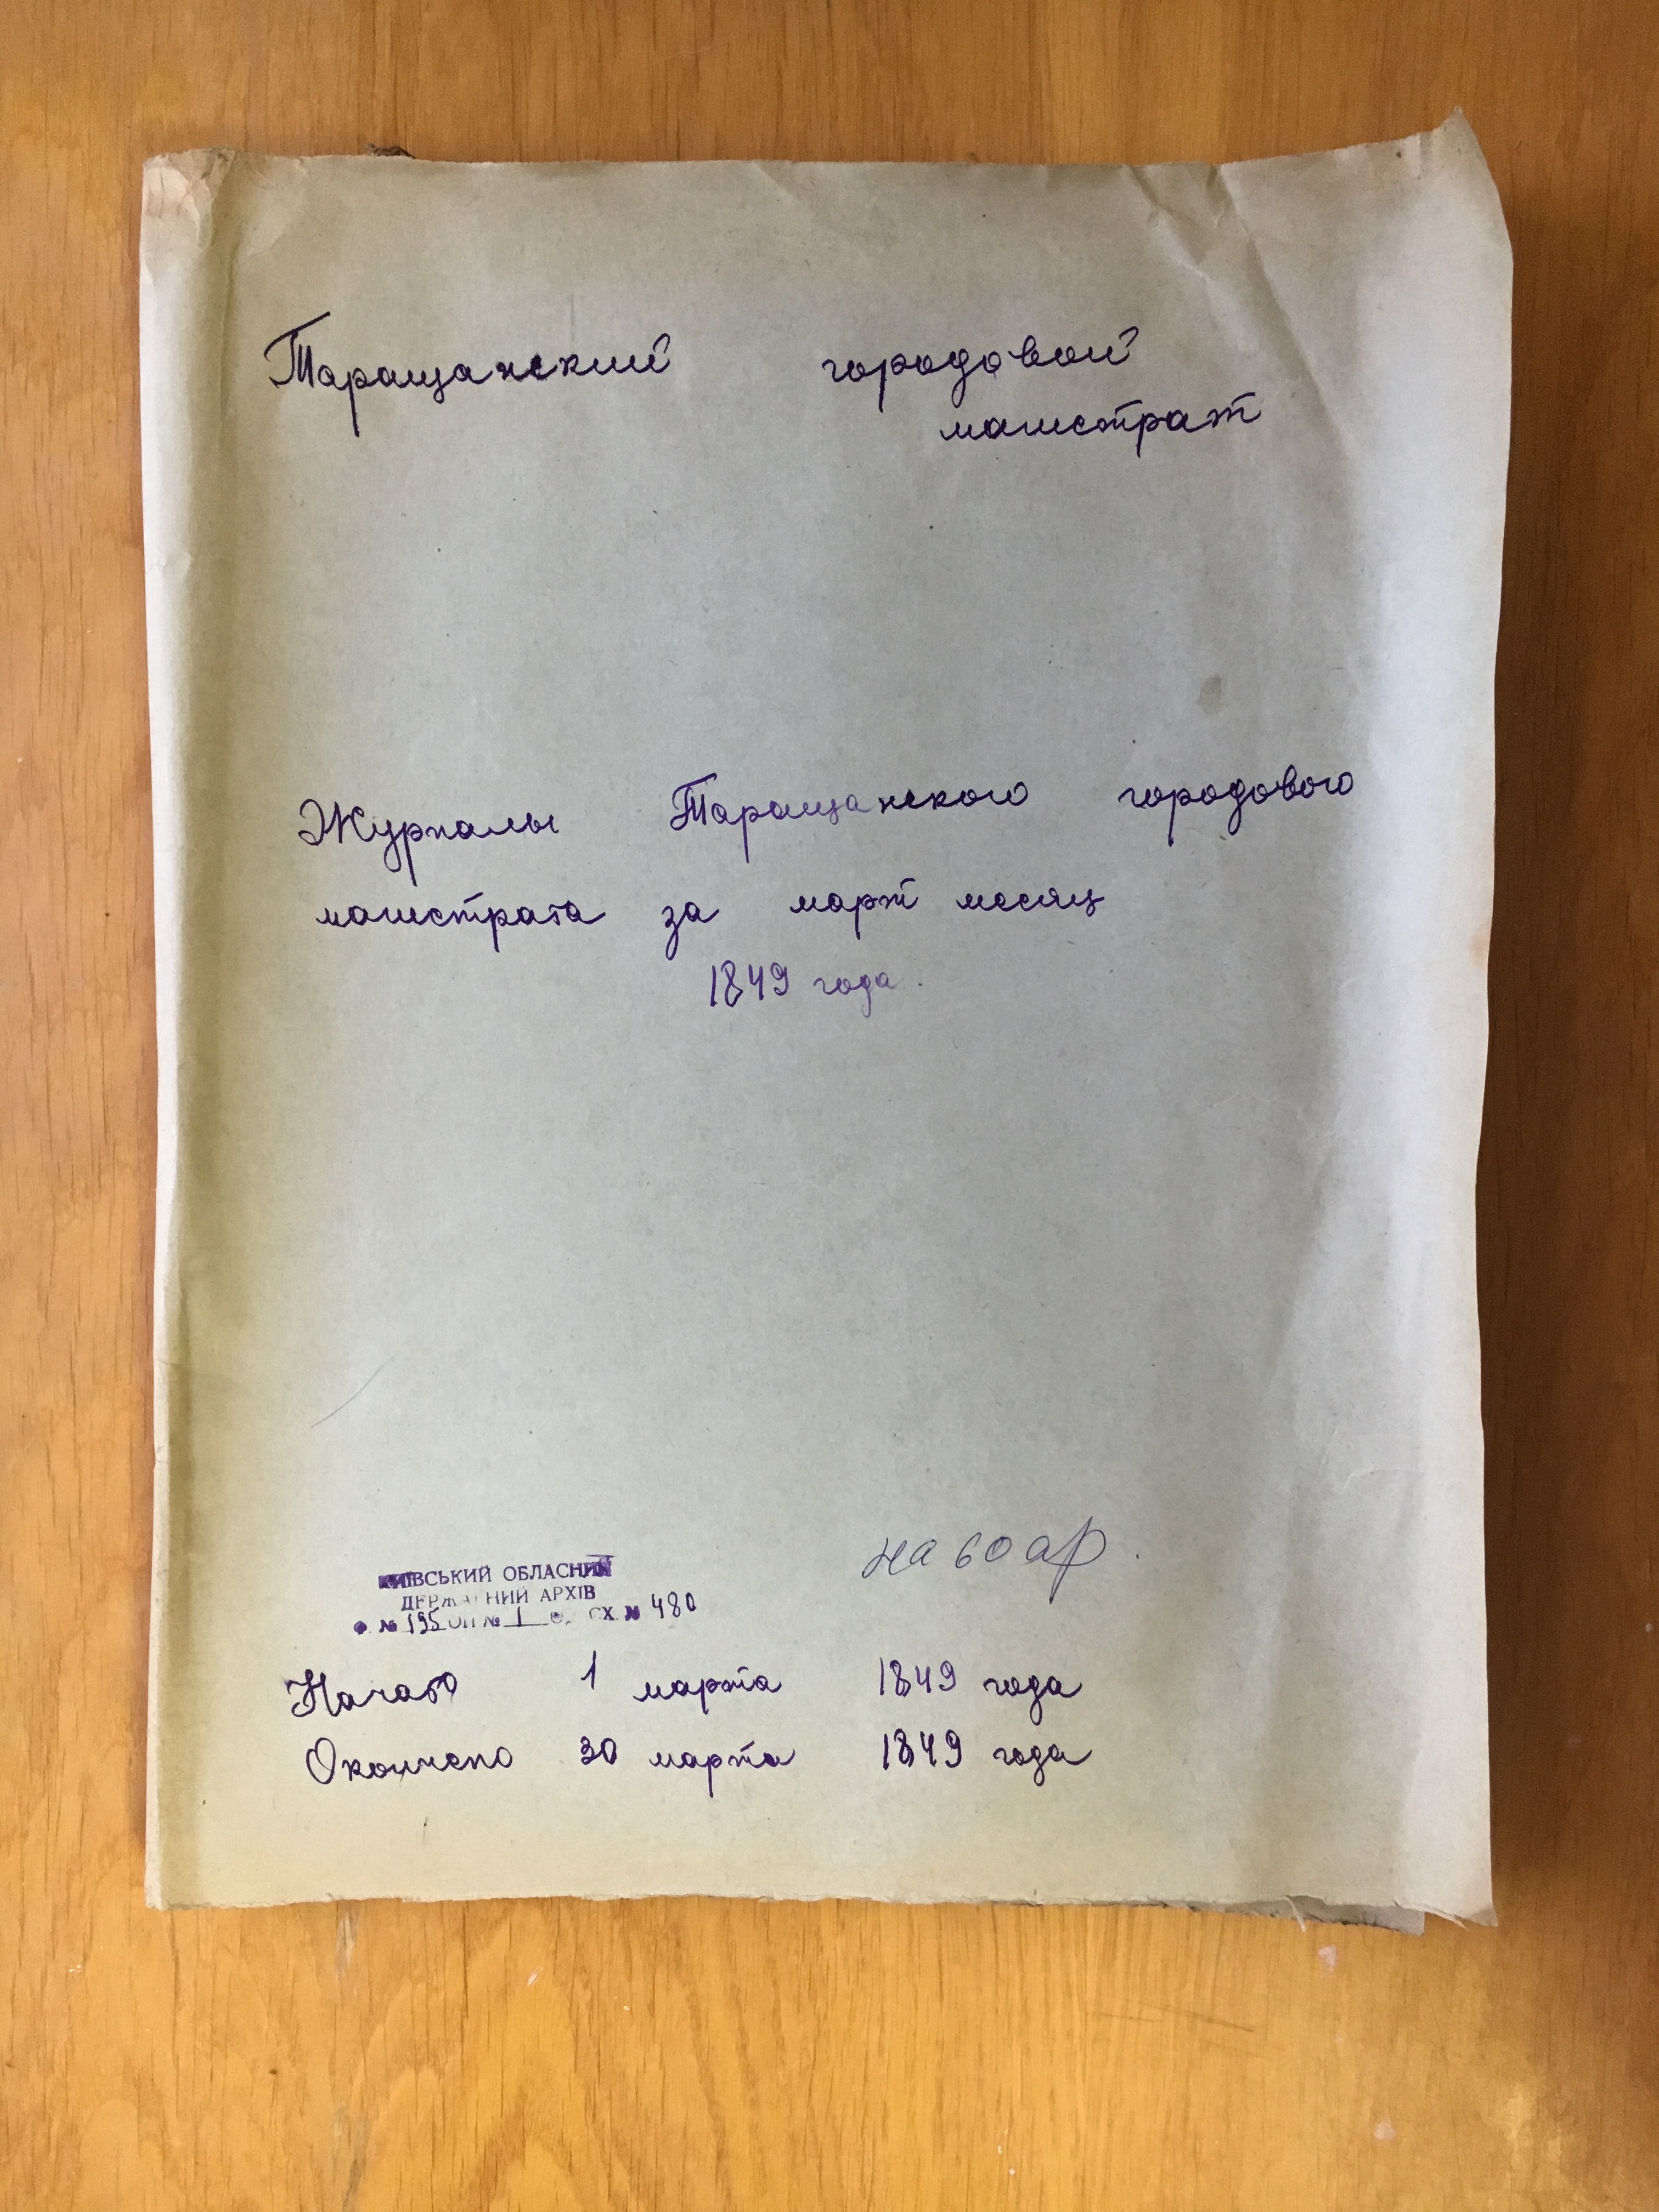 Таращанский городовой
магистрат
Журналы Таращанского городового
магистрата за март месяц
1849 года.
на 60 ар.
КИЇВСЬКИЙ ОБЛАСНИЙ
ДЕРЖАВНИЙ АРХІВ
Ф. № 195 ОП № 1 ОД. СХ. № 480
Начато 1 марта 1849 года
Окончено 30 марта 1849 года